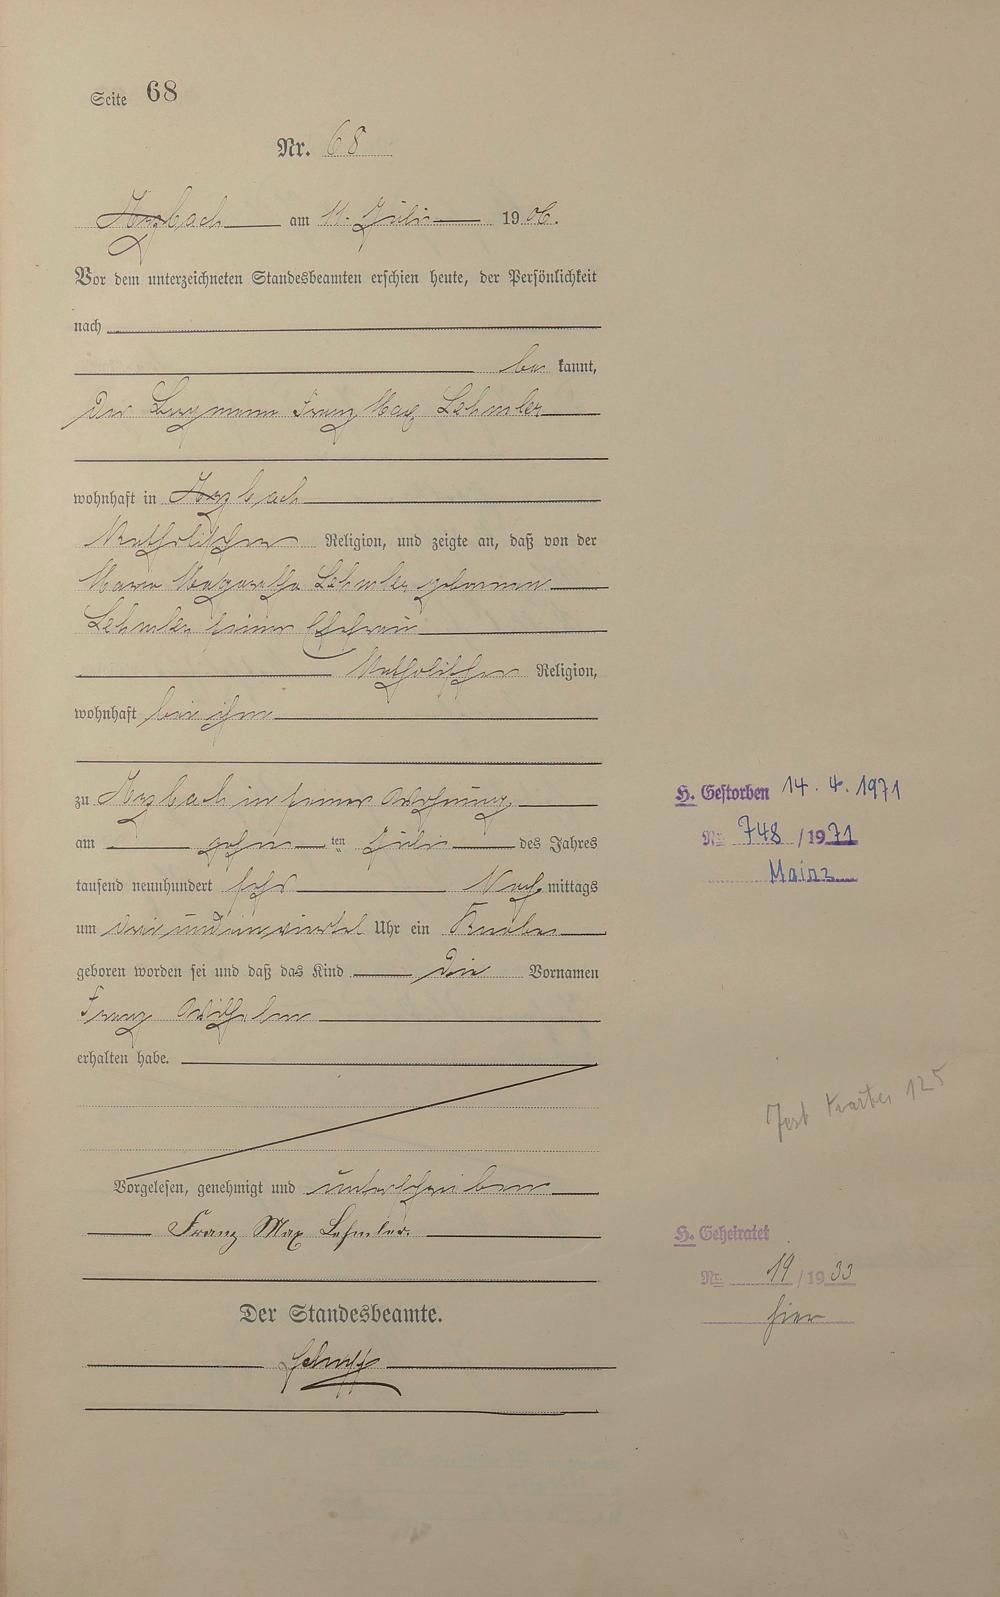 Seite 68
Nr. 68
Arzbach am 11. Juli 1906.
Vor dem unterzeichneten Standesbeamten erschien heute, der Persönlichkeit
nach
be kannt,
der Bergmann Franz Max Lehmler
wohnhaft in Arzbach
katholischer Religion, und zeigte an, daß von der
Maria Margaretha Lehmler geborenen
Lehmler seiner Ehefrau
katholischer Religion,
wohnhaft bei ihm
zu Arzbach in seiner Wohnung,
am zehn ten Juli des Jahres
tausend neunhundert sechs Nach mittags
um drei und ein viertel Uhr ein Knabe
geboren worden sei und daß das Kind die Vornamen
Franz Wilhelm
erhalten habe.
Vorgelesen, genehmigt und unterschrieben
Franz Max Lehmler.
Der Standesbeamte.
H. Gestorben 14. 4. 1971
Nr. 748 / 1971
Mainz
125
H. Geheiratet
Nr. 19 / 1933
hier